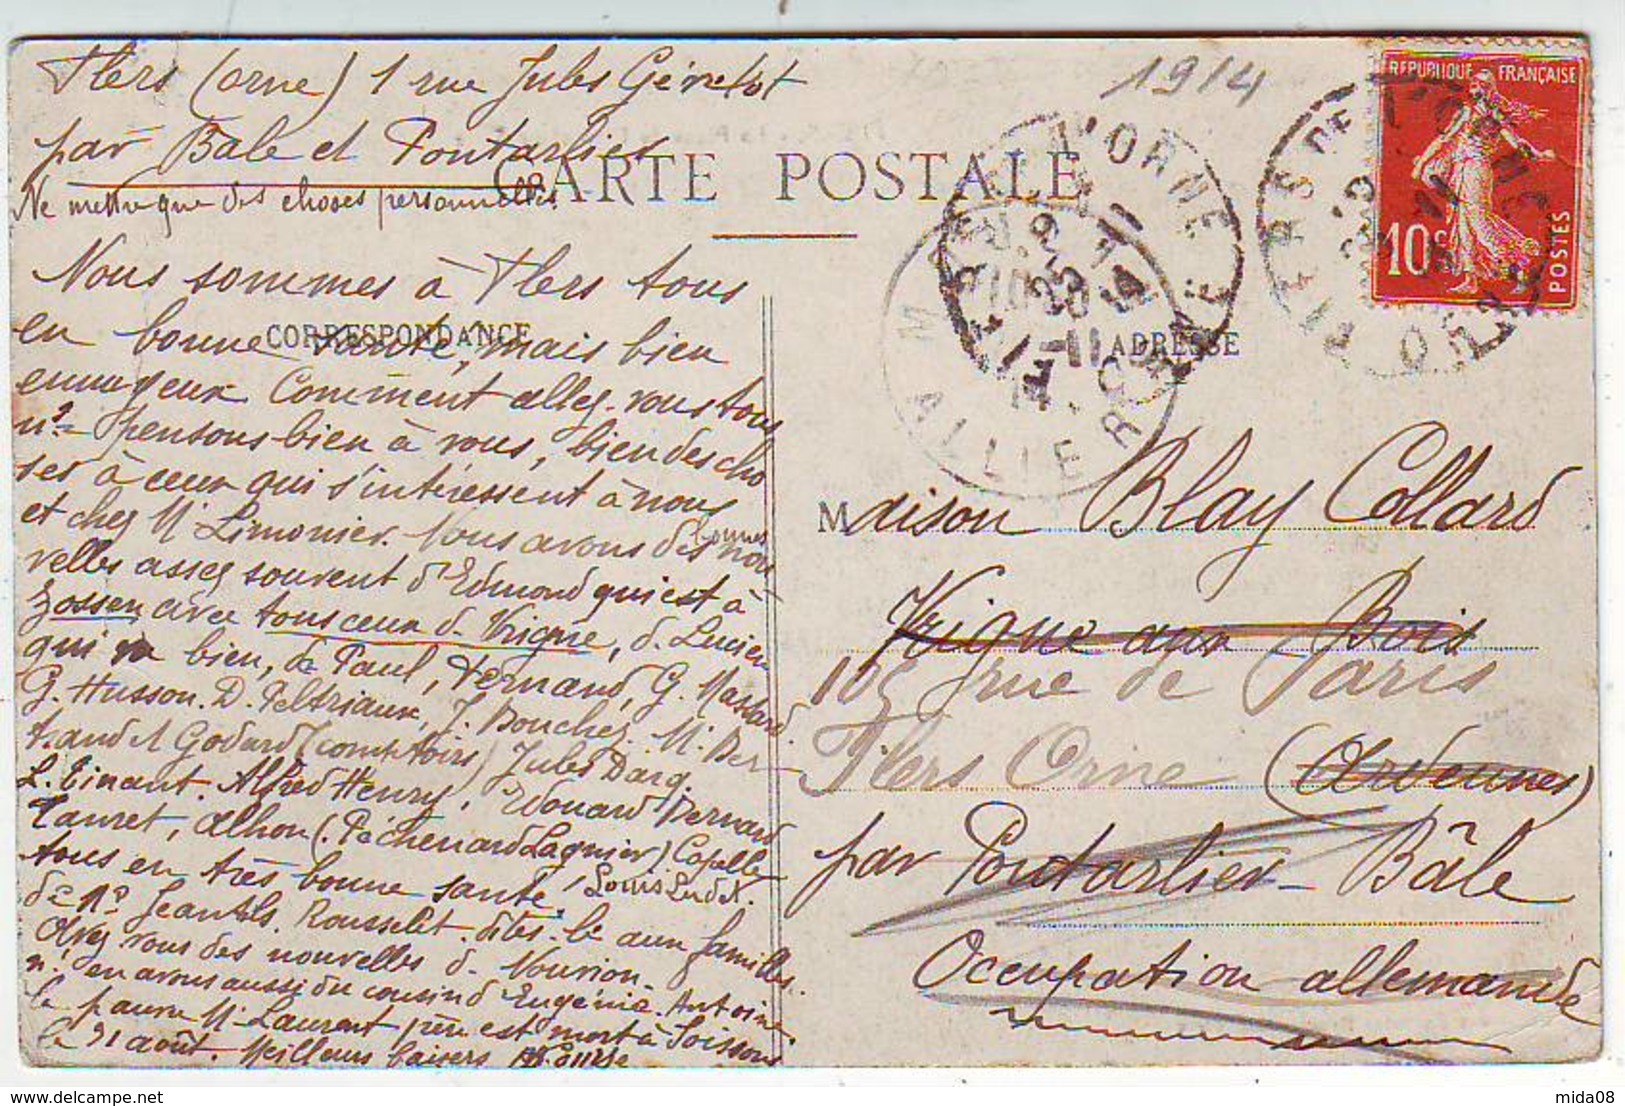 Flers (Orne) 1 rue Jules Gévelot
par Bale et Pontarlier
Ne mettre que des choses personnelles.
1914
REPUBLIQUE FRANÇAISE
10c
POSTES
CARTE POSTALE
CORRESPONDANCE
ADRESSE
ALLIER
Nous sommes à Flers tous
en bonne santé, mais bien
ennuyeux Comment allez-vous tous
ns pensons bien à vous, bien des cho
ses à ceux qui s'intéressent à nous
et chez Mr Limonier. Nous avons des bonnes nou
velles assez souvent d'Edmond qui est à
Zossen avec tous ceux d. Vrigne, d. Lucien
qui va bien, de Paul, Fernand, G. Massard
G. Husson. D. Peltriaux, J. Bouchez. M. Ber-
trand et Godard (comptoirs) Jules Darq.
L. Tinant. Alfred Henry, Edouard Bernard
Tauret, Alhon (Péchenard Lagnier) Capelle
tous en très bonne santé, Louis Ludet.
de Jeantils. Rousselet. dites-le aux familles.
Avez vous des nouvelles d. Nouvion-
n. en avons aussi du cousin d'Eugénie. Antoine
le pauvre Mr Laurent père est mort à Soissons
le 31 août. Meilleurs baisers
Maison Blay Collard
Vrigne aux Bois
105 rue de Paris
Flers Orne (Ardennes)
par Pontarlier - Bâle
Occupation allemande
mida08